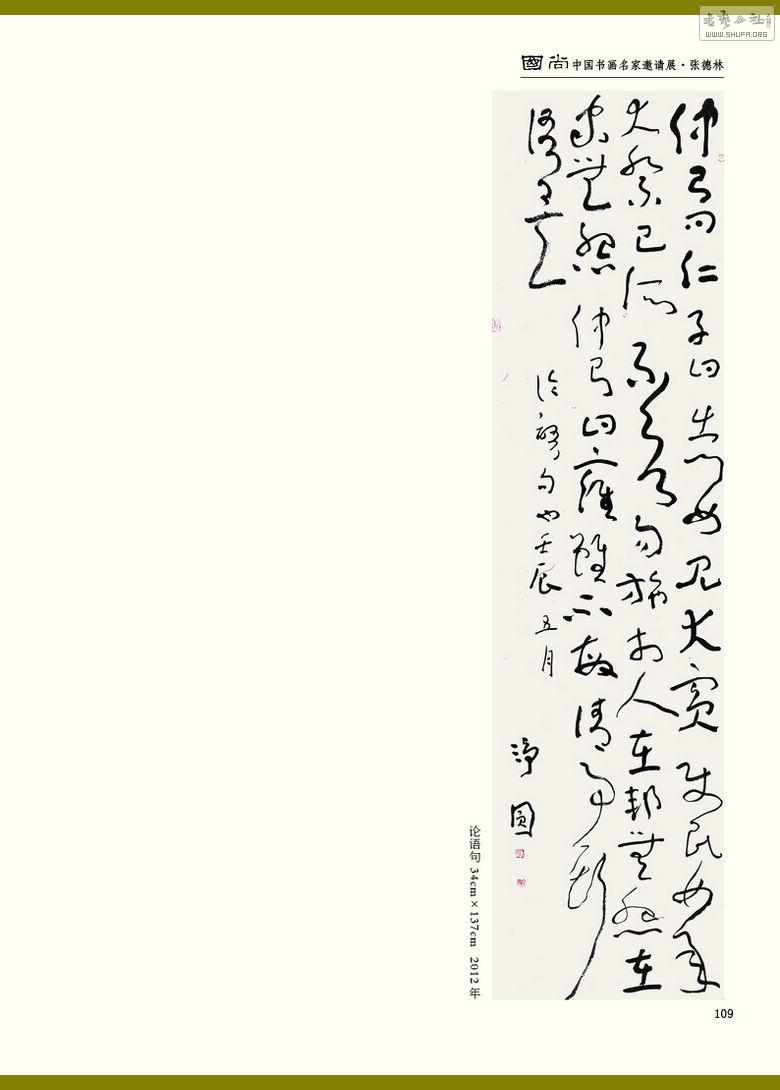 书艺公社
WWW.SHUFA.ORG
國尚 中国书画名家邀请展·张德林
仲弓问仁子曰出门如见大宾使民如承
大祭己所不欲勿施于人在邦无怨在
家无怨仲弓曰雍虽不敏请事斯
语矣
论语句也壬辰五月
净圆
论语句 34cm×137cm 2012年
109